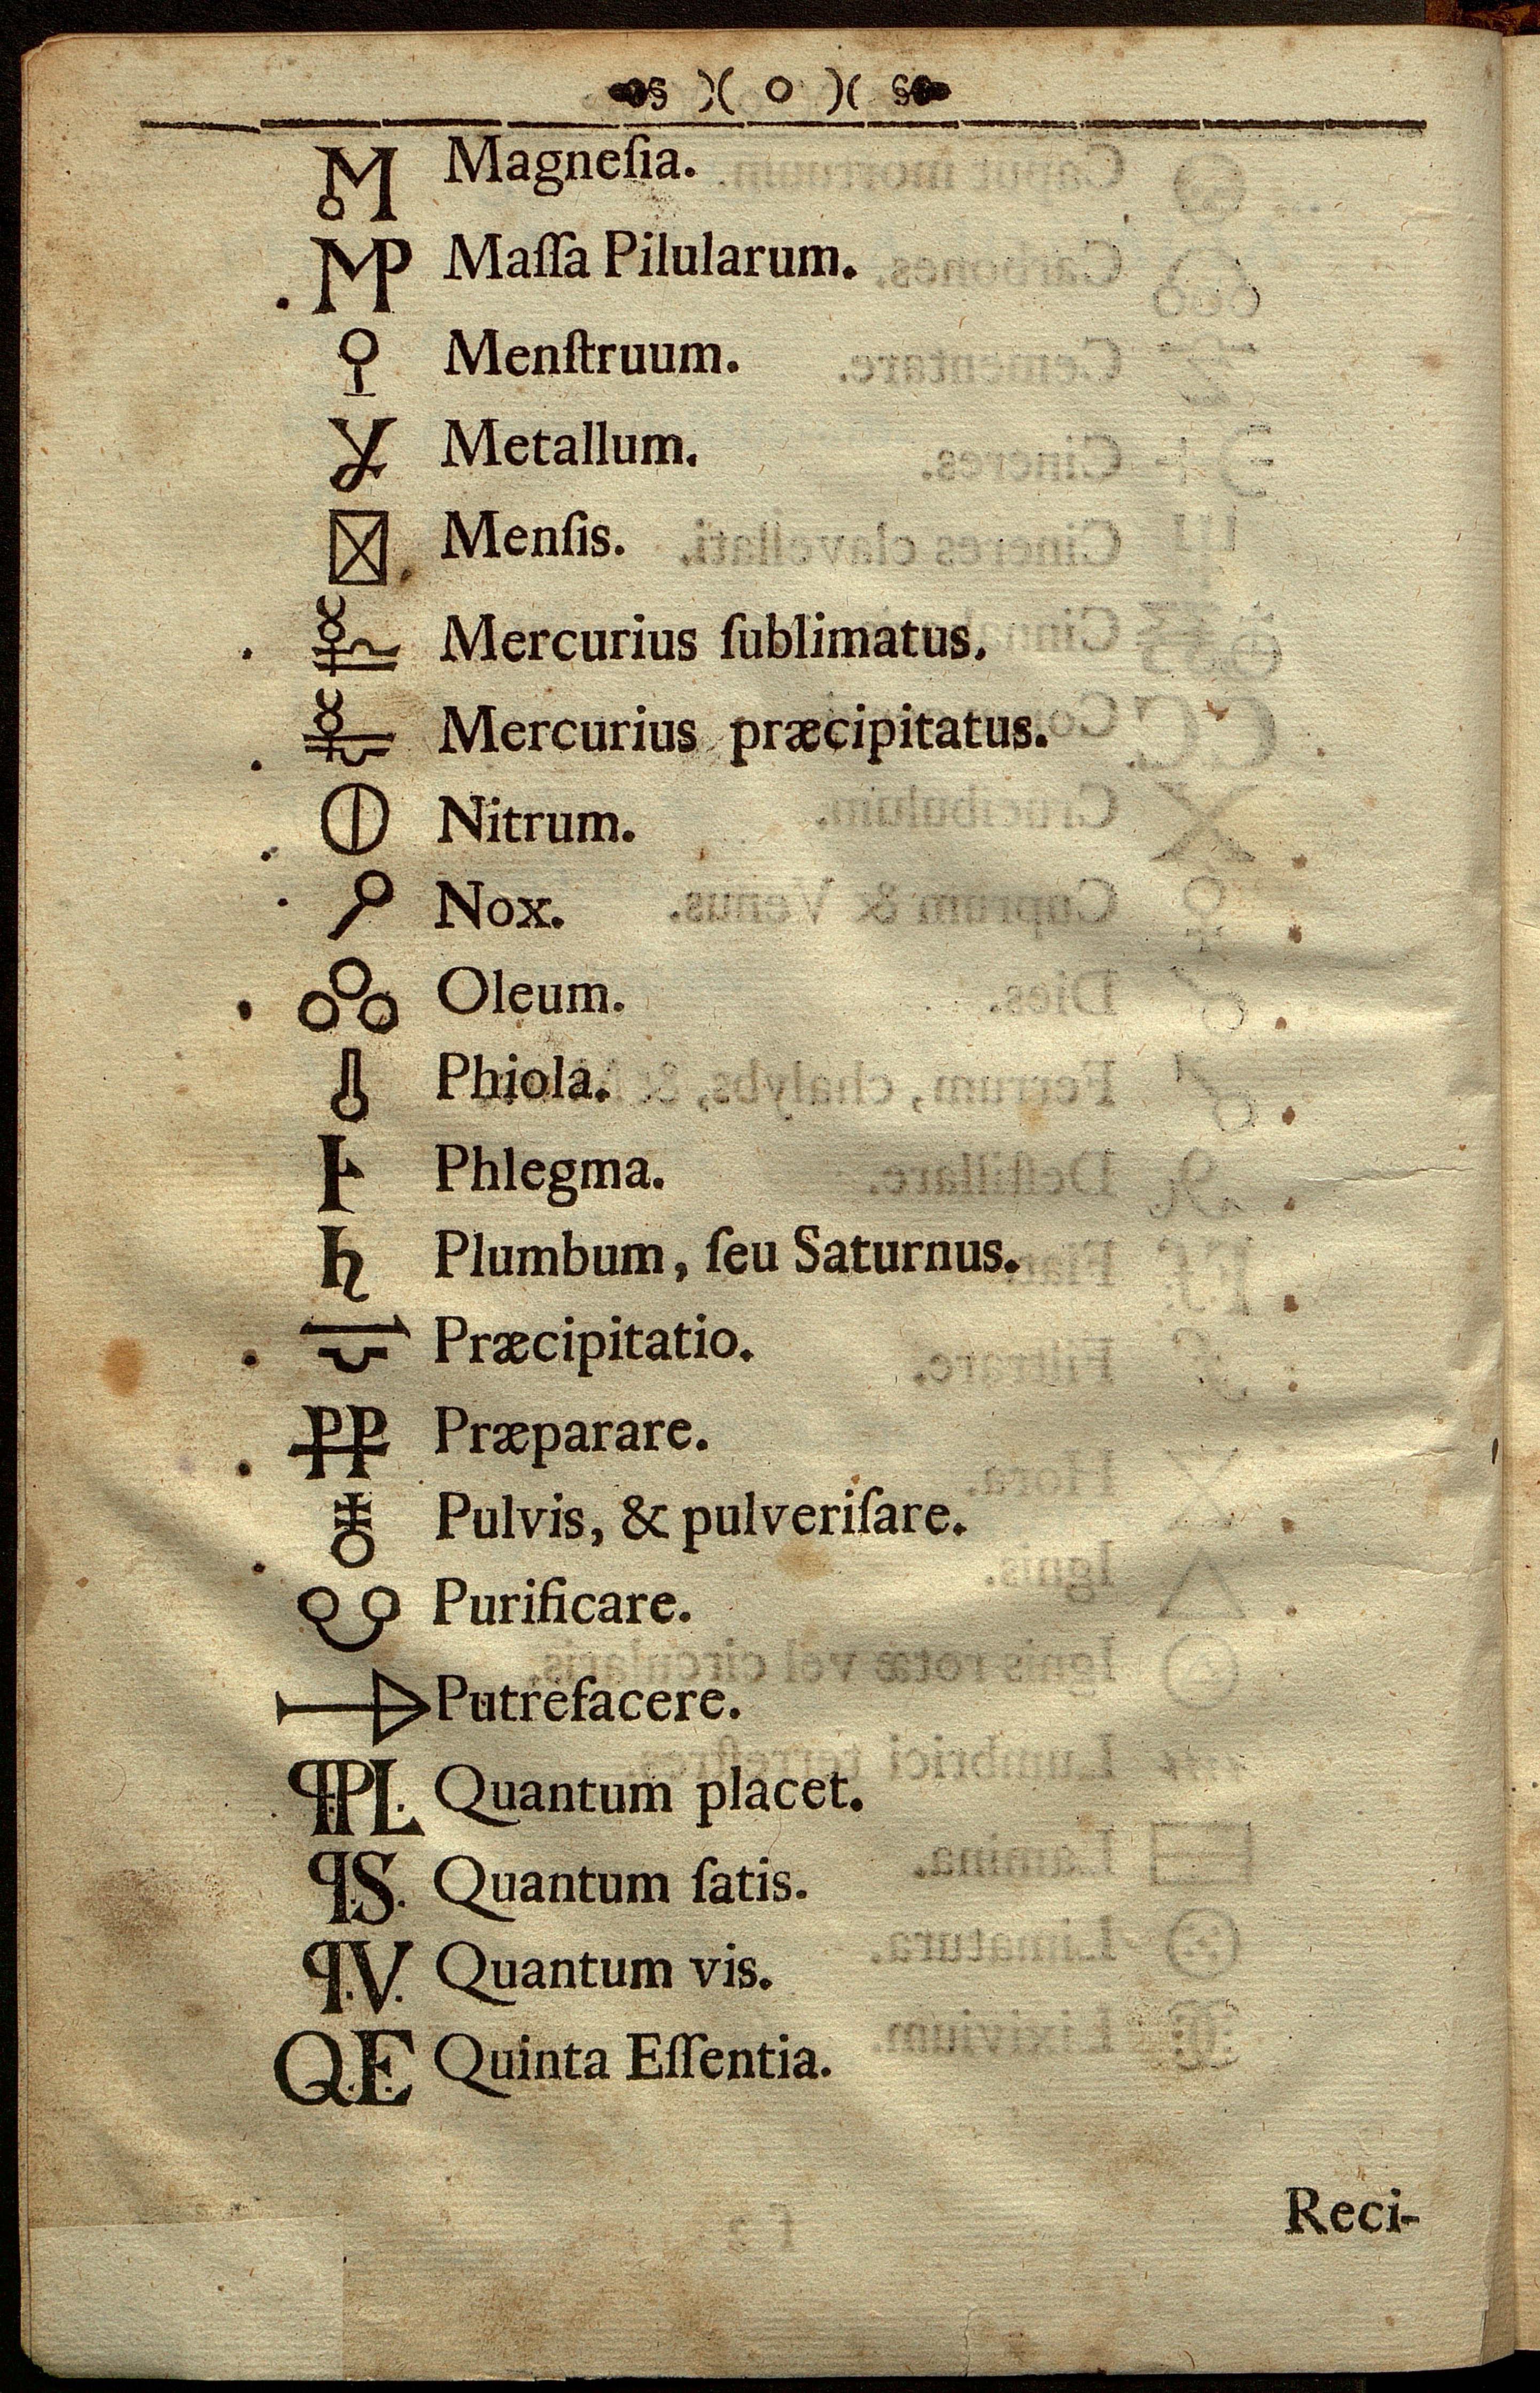 )( o )(
Magneſia.
MP Maſſa Pilularum.
Menſtruum.
Metallum.
Menſis.
Mercurius ſublimatus.
Mercurius præcipitatus.
Nitrum.
Nox.
Oleum.
Phiola.
Phlegma.
♄ Plumbum, ſeu Saturnus.
Præcipitatio.
PP Præparare.
Pulvis, & pulveriſare.
Purificare.
Putrefacere.
qPL Quantum placet.
q.S. Quantum ſatis.
q.V. Quantum vis.
Q.E. Quinta Eſſentia.
Reci-